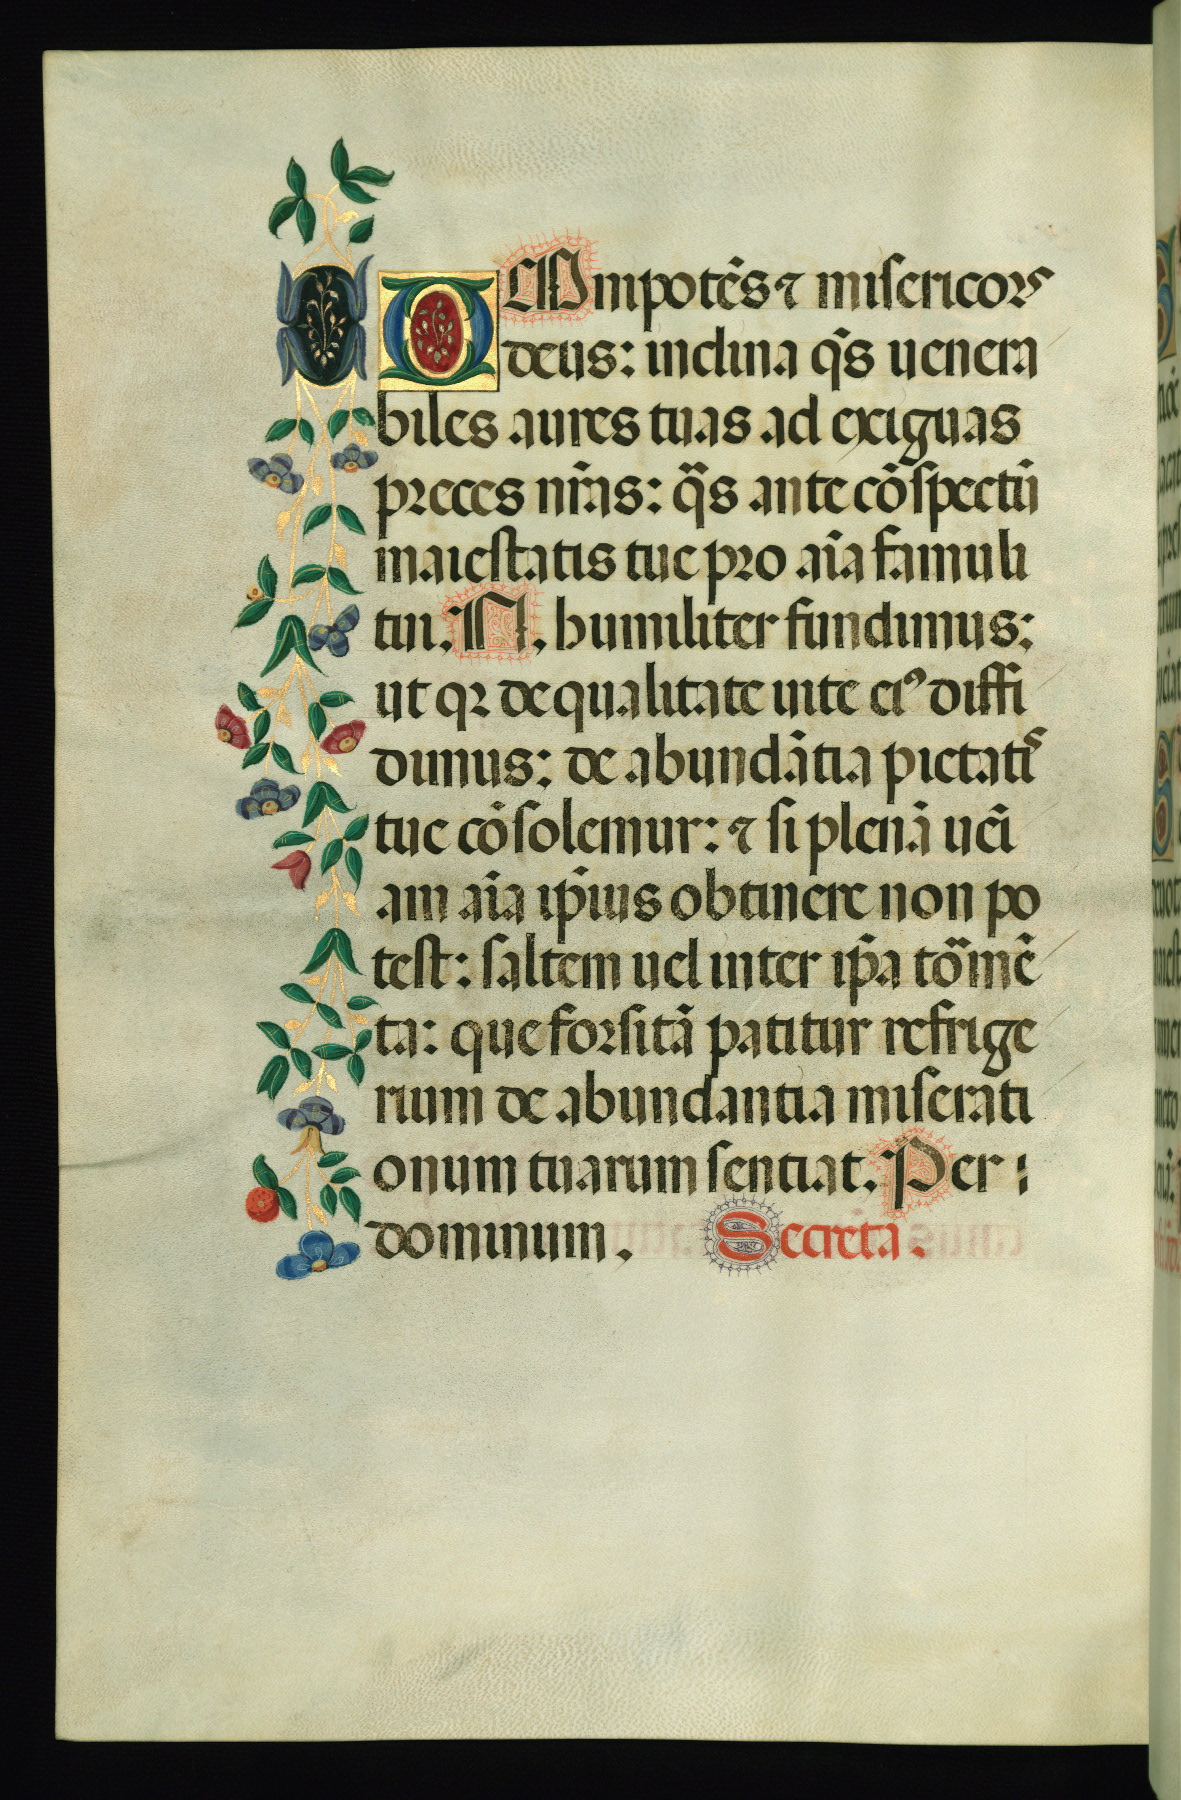 OMnipotẽs ⁊ misericors
deus: inclina q̃s uenera
biles aures tuas ad exiguas
preces nr̃as: q̃s ante cõspectũ
maiestatis tue pro aĩa famuli
tui. N. humiliter fundimus:
ut qꝛ de qualitate uite eiꝰ diffi
dimus: de abundãtia pietatis
tue cõsolemur: ⁊ si plenã ueĩ
am aĩa ip̃ius obtinere non po
test: saltem uel inter ip̃a tõmẽ
ta: que forsitã patitur refrige
rium de abundantia miserati
onum tuarum sentiat. Per:
dominum. Secreta.